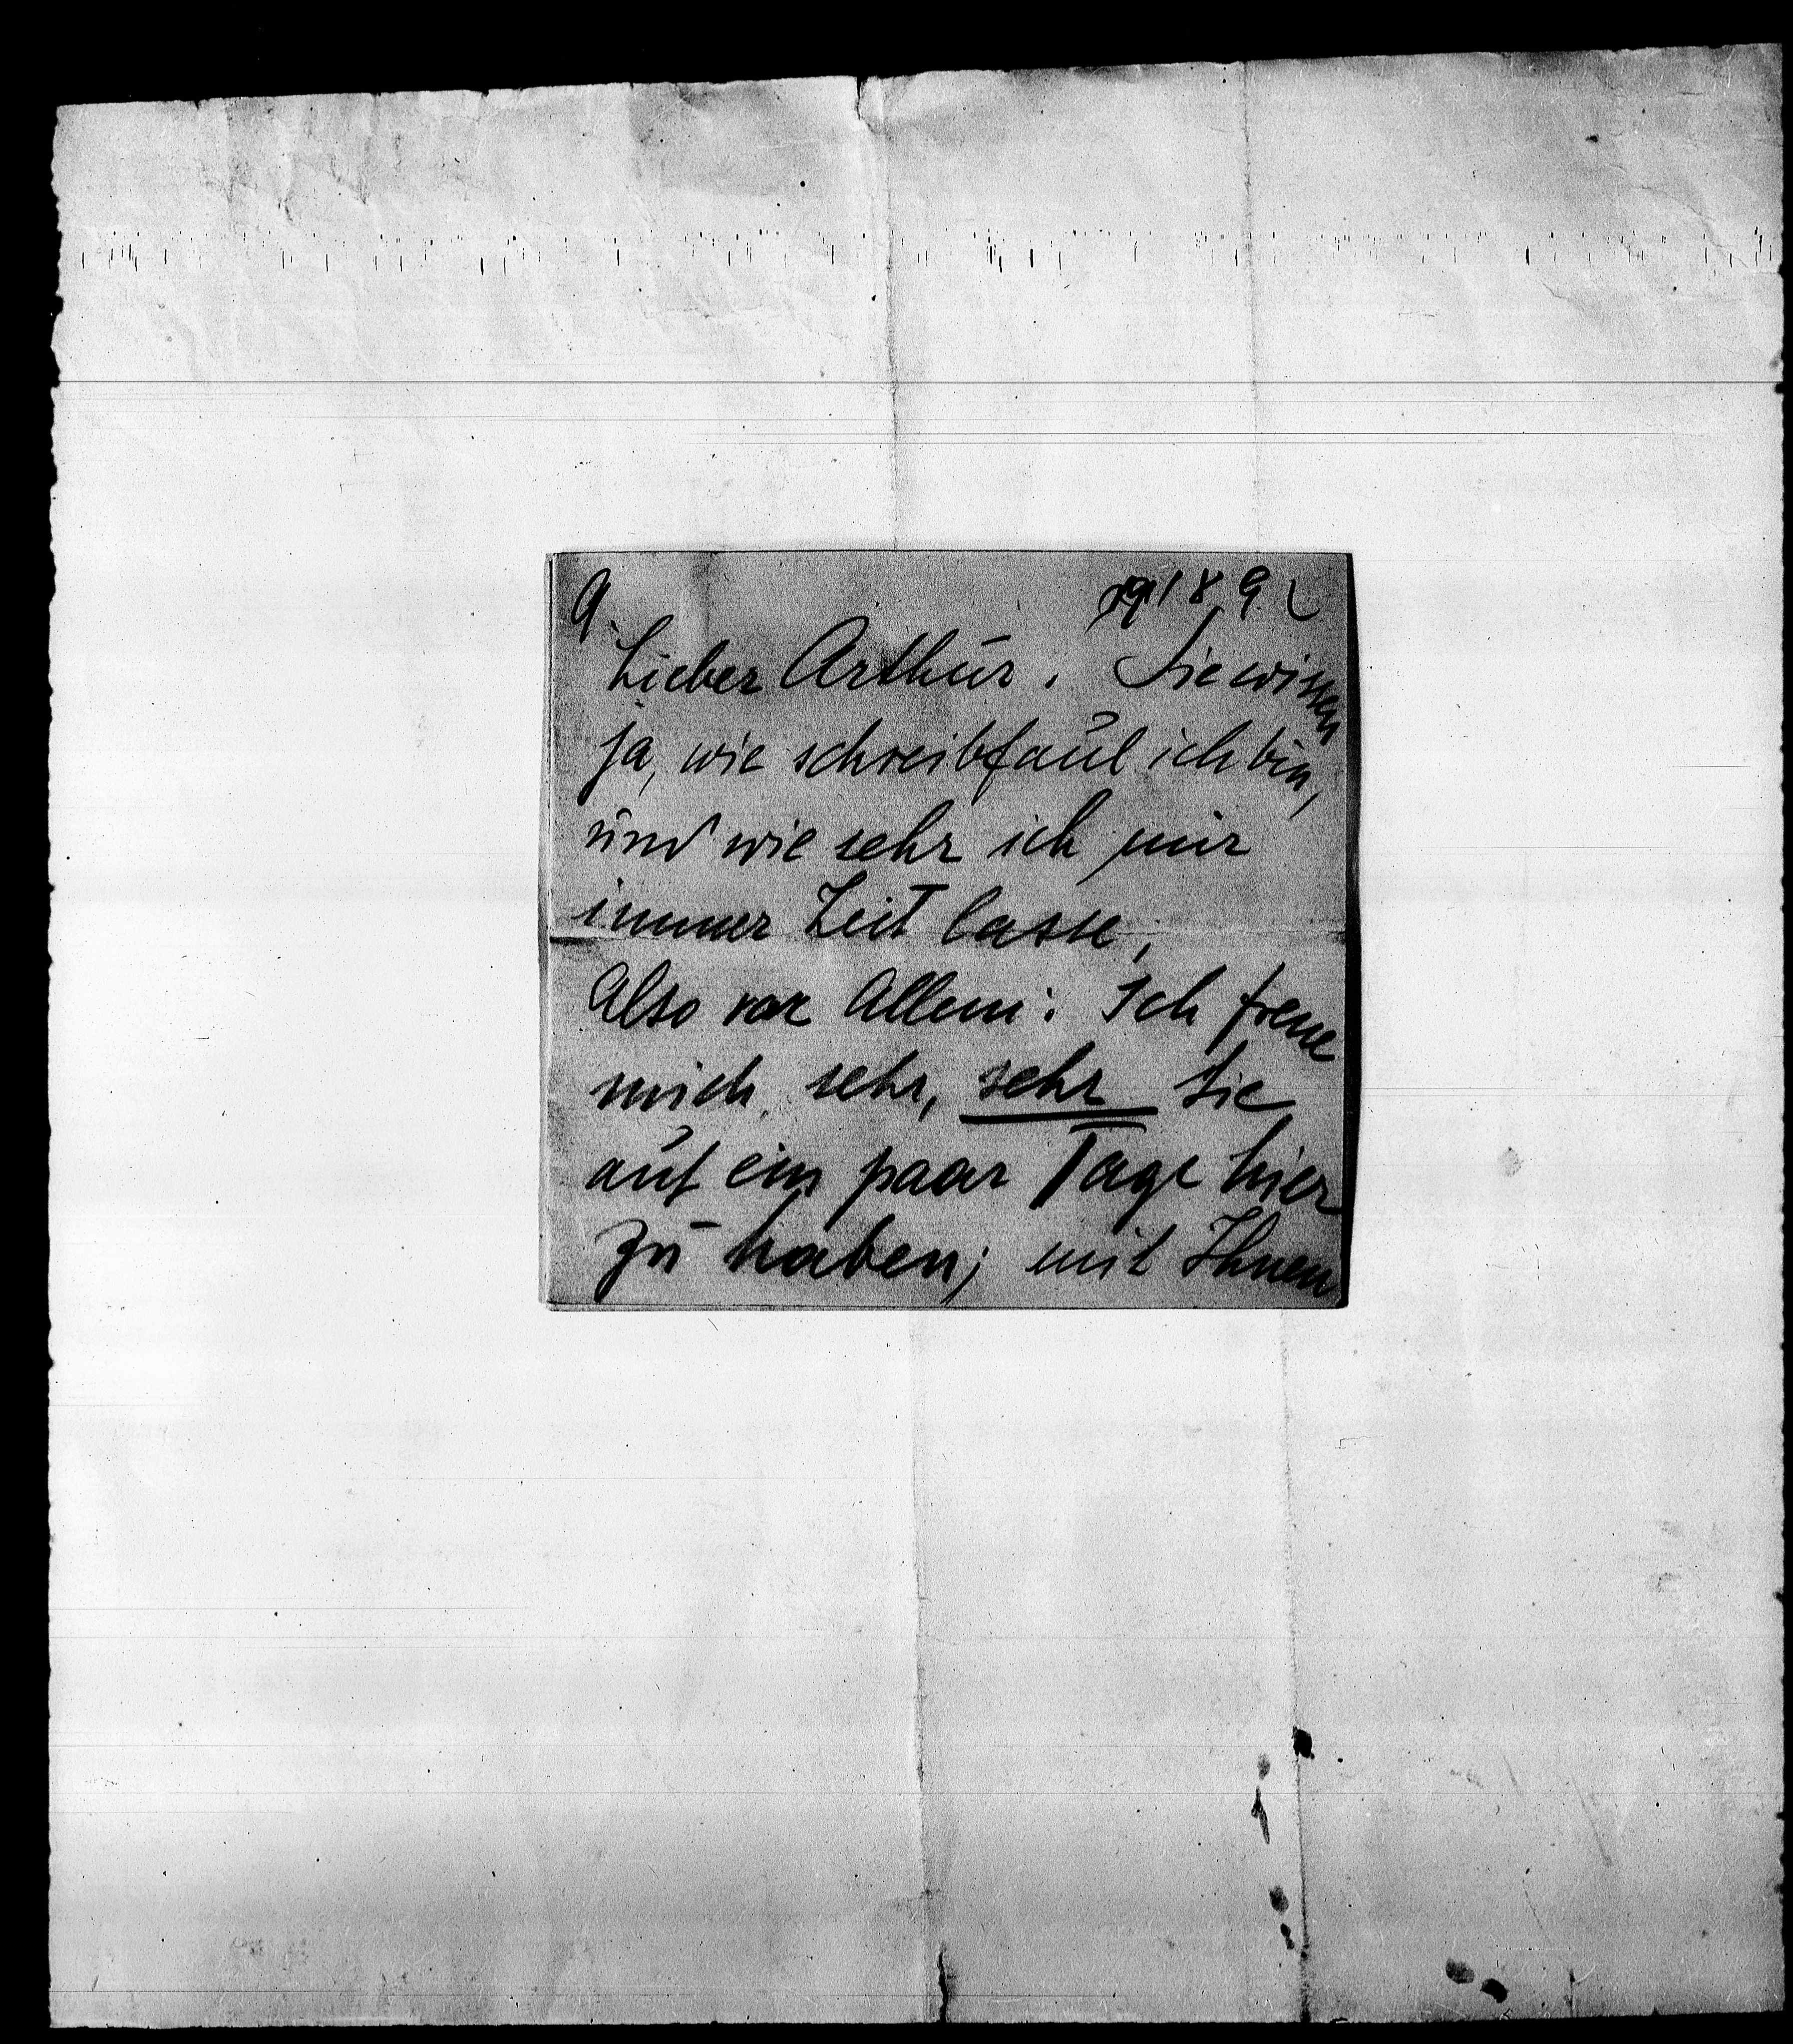 9.
Lieber Arthur. Sie wissen
ja, wie schreibfaul ich bin,
und wie sehr ich mir
immer Zeit lasse,
Also vor Allem: Ich freue
mich, sehr, sehr Sie
auf ein paar Tage hier
zu haben; mit Ihnen